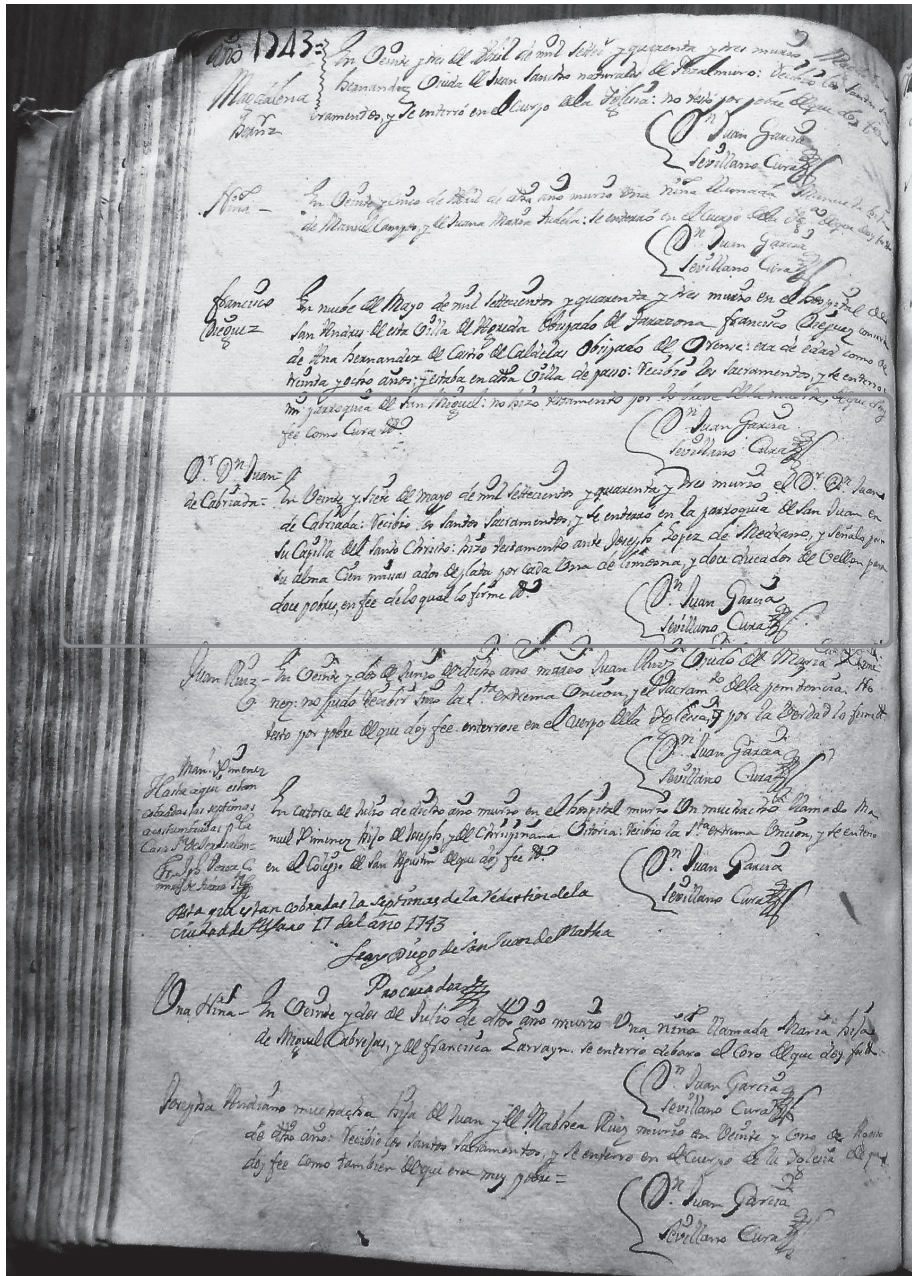 año 1743=
En Veinte y tres de Abril de mil setteᵒˢ y quarenta y tres murio
Magdalena hernandez Viuda de Juan Sancho naturales de Pozalmuro: Recibio los santos sa-
cramentos, y se enterró en el cuerpo de la Iglesia: no testó por pobre de que doy fee
Dⁿ Juan Garcia
Sevillano Cura
Niña- En Veinte y cinco de Abril de dho año murio Una niña llamada Manuela
de Manuel Campos, y de Juana Maria Tudela: se enterró en el cuerpo de la Igˡᵃ de que doy fee
Dⁿ Juan Garcia
Sevillano Cura
francisco
Dieguez
En nuebe de Mayo de mil settecientos y quarenta y tres murio en el hospital de
San Andres de esta Villa de Agreda Obispado de Tarazona francisco Dieguez
de Ana hernandez de Castro de Caldelas Obispado de Orense: era de edad como de
treinta y ocho años: y estaba en dha Villa de passo: Recibió los Sacramentos, y se enterró
mi parroquia de San Miguel: no hizo testamento por de que doy
fee como Cura
Dⁿ Juan Garcia
Sevillano Cura
Dʳ Dⁿ Juan
de Cabriada=
En Veinte y siete de Mayo de mil settecientos y quarenta y tres murio el Dʳ Dⁿ Juan
de Cabriada: Recibio los santos Sacramentos, y se enterró en la parroquia de San Juan en
su Capilla del Santo Christo: hizo testamento ante Joseph Lopez de Medrano, y señaló por
su alma Cien missas a dos de plata por cada Una de limosna, y doce ducados de Vellon para
doce pobres, en fee de lo qual lo firme
Dⁿ Juan Garcia
Sevillano Cura
Juan Ruiz- En Veinte y dos de Junio de dicho año murio Juan Ruiz Viudo de Maria Xime-
nez: no pudo Recibir sino la Sᵗᵃ extrema Uncion, y el Sacramᵗᵒ de la penitencia. No
testó por pobre de que doy fee. enterrose en el Cuerpo de la Iglesia, y por la Verdad lo firmé
Dⁿ Juan Garcia
Sevillano Cura
Manˡ Ximenez
Hasta aqui estan
cobradas las septimas
En Catorce de Julio de dicho año murio en el hospital murio Un muchacho llamado Ma-
nuel Ximenez hijo de Joseph, y de Chrisptiana Vitoria: recibio la Sᵗᵃ extrema Uncion, y se enterró
en el Colegio de San Agustin de que doy fee
Dⁿ Juan Garcia
Sevillano Cura
Asta aqui estan cobradas la septimas de la Redention de la
ciudad de 17 del año 1743
fray Diego de San Juan de Matha
Procurador
Una Niña- En Veinte y dos de Julio de dho año murio Una niña llamada Maria hija
de Miguel Cabrejas, y de francisca Larrayn. se enterró debaxo el Coro de que doy fee
Dⁿ Juan Garcia
Sevillano Cura
Josepha muchacha hija de Juan y de Mathea Ruiz murio en Veinte y de Agosto
de dho año: Recibio los Santos Sacramentos, y se enterro en el Cuerpo de la Iglesia de que
doy fee como tambien de que era muy pobre=
Dⁿ Juan Garcia
Sevillano Cura